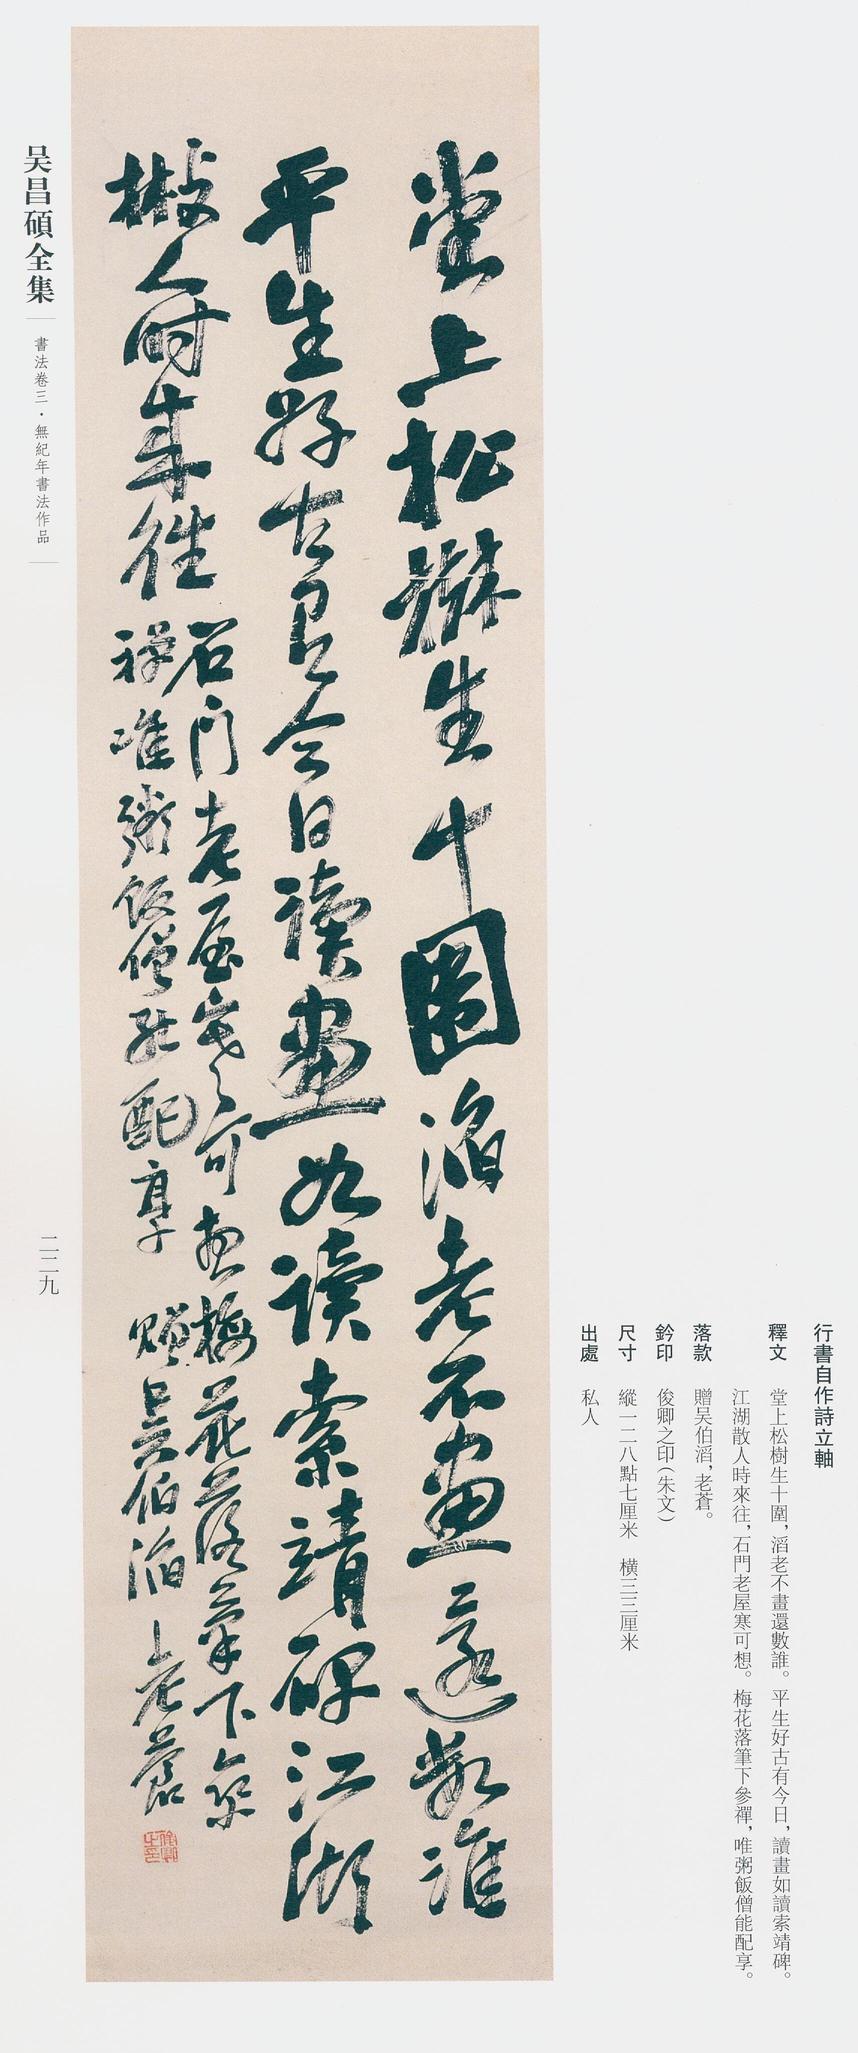 行書自作詩立軸
釋文　堂上松樹生十圍，滔老不畫還數誰。平生好古有今日，讀畫如讀索靖碑。
江湖散人時來往，石門老屋寒可想。梅花落筆下參禪，唯粥飯僧能配享。
落款　贈吴伯滔，老蒼。
鈐印　俊卿之印（朱文）
尺寸　縱一二八點七厘米　橫三三厘米
出處　私人
堂上松樹生十圍滔老不畫還數誰
平生好古有今日讀畫如讀索靖碑江湖
散人時來往
石門老屋寒可想梅花落筆下參
禪唯粥飯僧能配享　贈吴伯滔　老蒼
俊卿之印
吴昌碩全集
書法卷三·無紀年書法作品
二二九